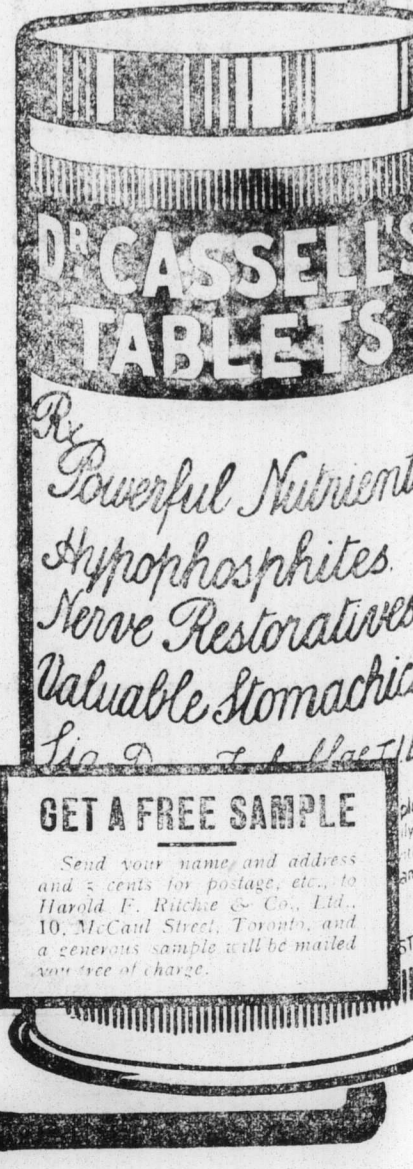 DR. CASSELL'S
TABLETS
Rx
Powerful Nutrient
Hypophosphites.
Nerve Restoratives
Valuable Stomachic
GET A FREE SAMPLE
Send your name and address
and 5 cents for postage, etc., to
Harold F. Ritchie & Co., Ltd.,
10, McCaul Street, Toronto, and
a generous sample will be mailed
you free of charge.